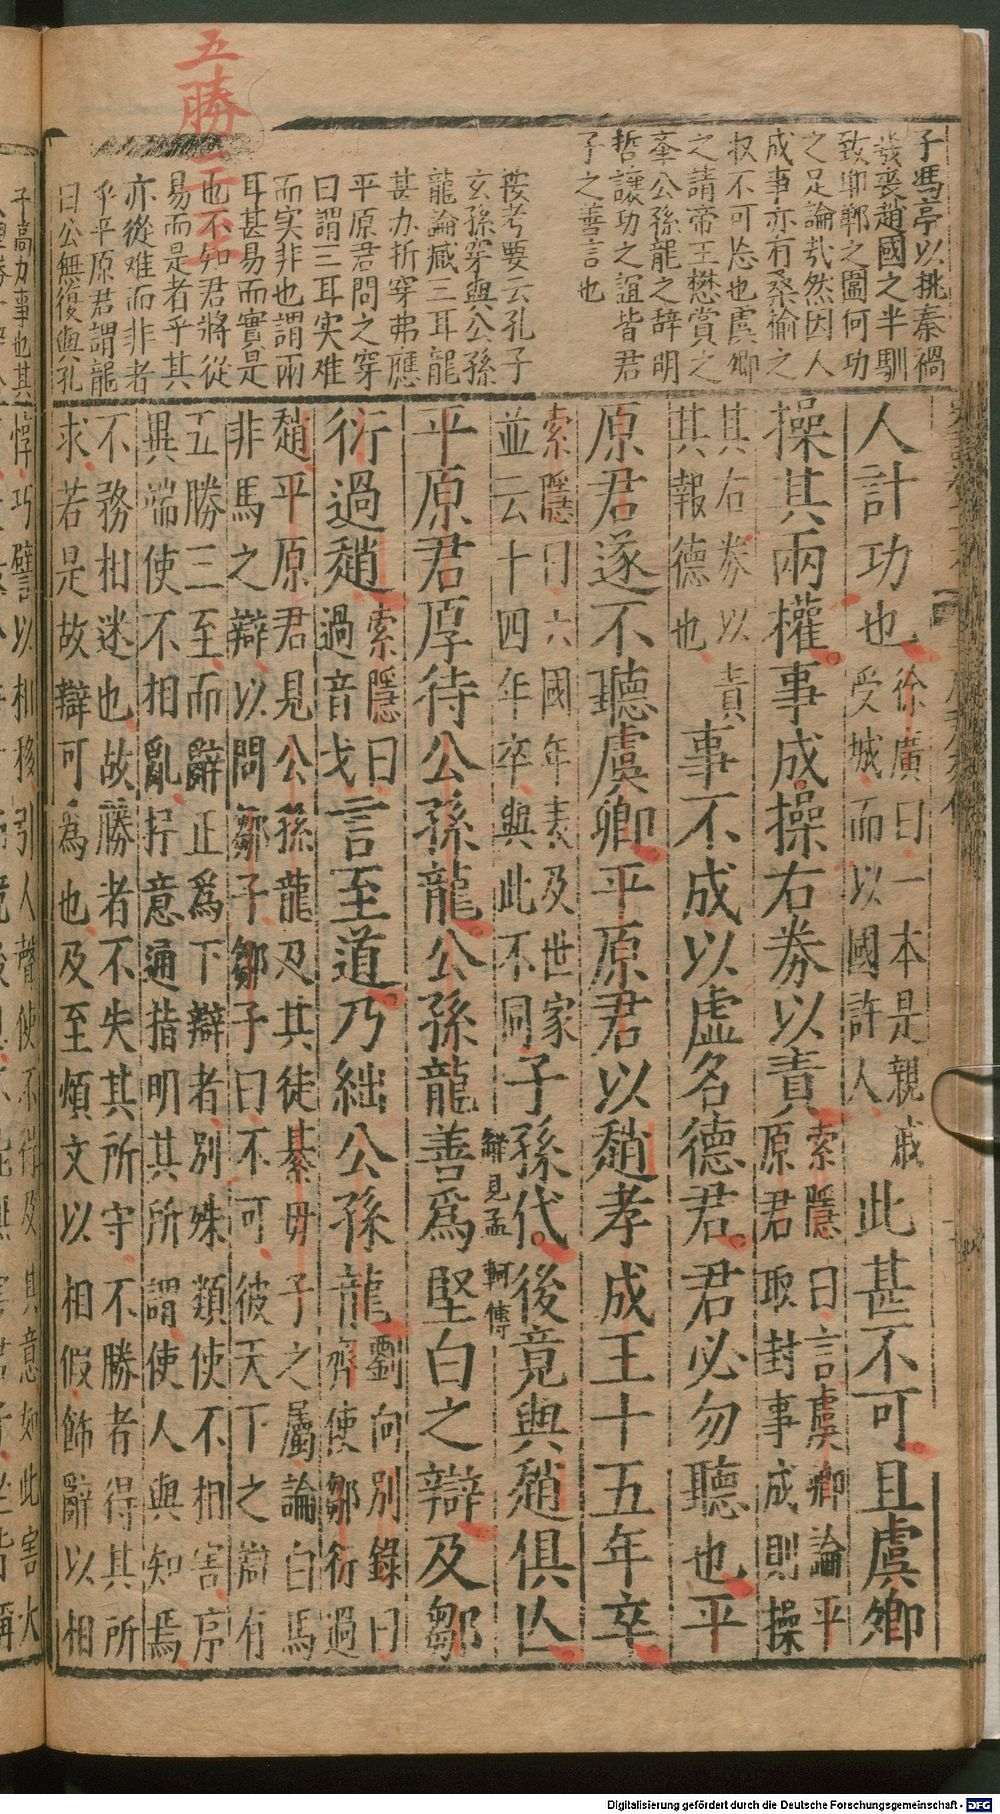 五勝三至
子馮亭以挑秦禍
發喪趙國之半馴
致邯鄲之圍何功
之足論哉然因人
成事亦有桑榆之
収不可忘也虞卿
之請帝王懋賞之
奎公孫龍之辞明
哲讓功之誼皆君
子之善言也
按考要云孔子
玄孫穿與公孫
龍論臧三耳龍
甚力折穿弗應
平原君問之穿
曰謂三耳実难
而実非也謂兩
耳甚易而實是
也不知君將從
易而是者乎其
亦從难而非者
乎平原君謂龍
曰公無復與孔
人計功也徐廣曰一本是親戚受城而以國許人此甚不可且虞卿
操其兩權事成操右券以責索隱曰言虞卿論平原君取封事成則操
其右券以責其報德也事不成以虛名德君君必勿聽也平
原君遂不聽虞卿平原君以趙孝成王十五年卒
索隱曰六國年表及世家並云十四年卒與此不同子孫代後竟與趙俱亾
平原君厚待公孫龍公孫龍善爲堅白之辯觧見孟軻傳及鄒
衍過趙索隱曰過音戈言至道乃絀公孫龍劉向別錄曰齊使鄒衍過
趙平原君見公孫龍及其徒綦毋子之屬論白馬
非馬之辯以問鄒子鄒子曰不可彼天下之辯有
五勝三至而辭正爲下辯者別殊類使不相害序
異端使不相亂抒意通指明其所謂使人與知焉
不務相迷也故勝者不失其所守不勝者得其所
求若是故辯可爲也及至煩文以相假飾辭以相
子高力事也其
惇巧譬以相移引人聲使不得及其意如此害大
Digitalisierung gefördert durch die Deutsche Forschungsgemeinschaft - DFG